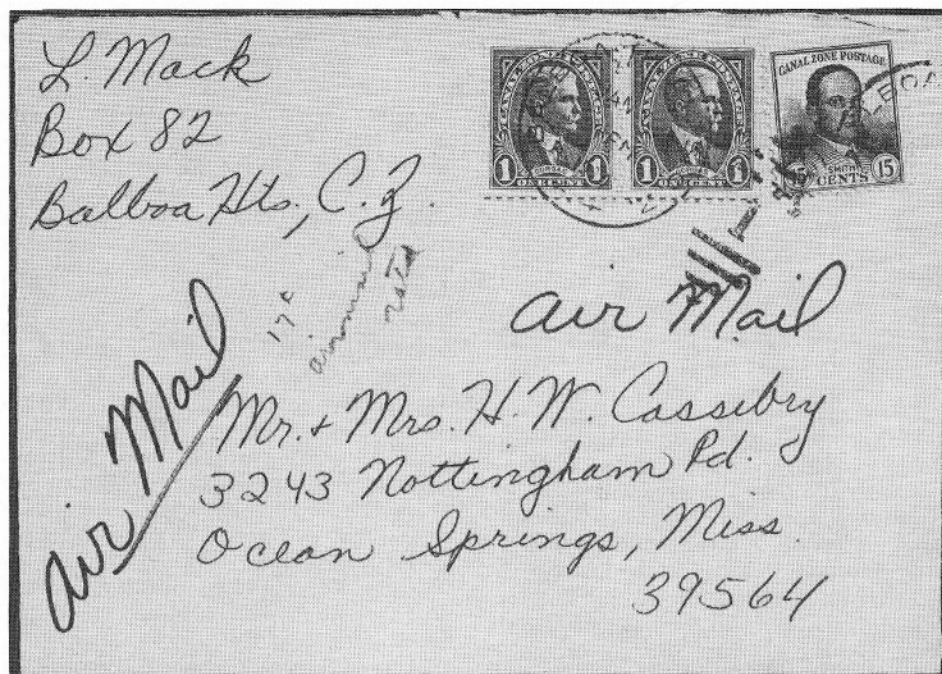 L. Mack
Box 82
Balboa Hts., C.Z.
CANAL ZONE POSTAGE
1 GORGAS 1
ONE CENT
CANAL ZONE POSTAGE
1 GORGAS 1
ONE CENT
CANAL ZONE POSTAGE
15 SMITH 15
CENTS
1
17¢
airmail
rate
air Mail
air Mail
Mr. + Mrs. H. W. Cassibry
3243 Nottingham Rd.
Ocean Springs, Miss.
39564